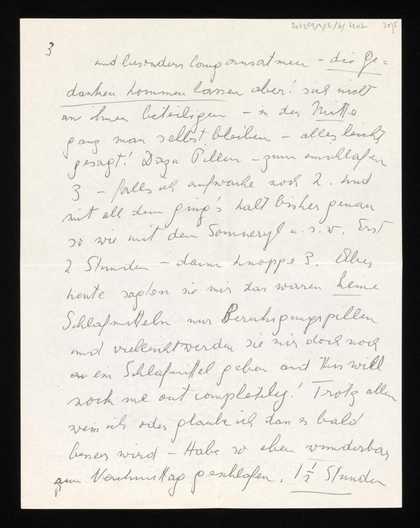 3
und besonders langsam atmen – die Ge-
danken kommen lassen aber! sich nicht
an ihnen beteiligen – in der Mitte
ganz man selbst bleiben – alles leicht
gesagt! Dazu Pillen – zum einschlafen
3 – falls ich aufwache noch 2. Und
mit all dem ging's halt bisher genau
so wie mit dem Somneryl u.s.w. Erst
2 Stunden – dann knappe 3. Aber
heute sagten sie mir das waren keine
Schlafmitteln nur Beruhigungspillen
und vielleicht werden sie mir doch noch
an ein Schlafmittel geben and this will
nock me out completely! Trotz allem
weiss ich oder glaube ich dass es bald
besser wird – Habe so eben wunderbar
zum Vormittag geschlafen. 1 1/2 Stunden